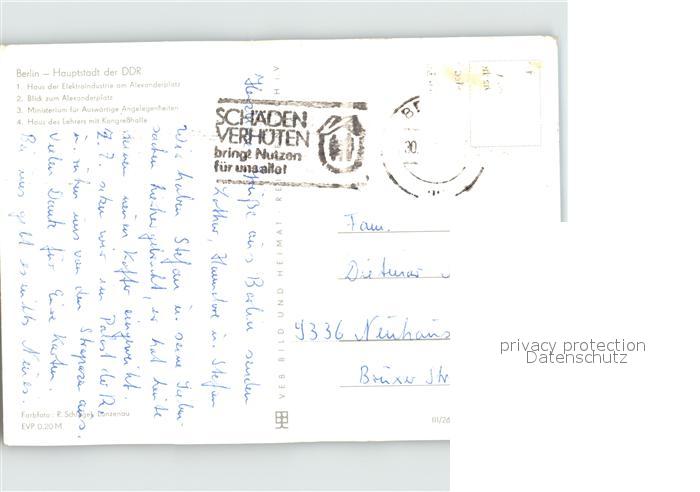 Berlin – Hauptstadt der DDR
1. Haus der Elektroindustrie am Alexanderplatz
2. Blick zum Alexanderplatz
3. Ministerium für Auswärtige Angelegenheiten
4. Haus des Lehrers mit Kongreßhalle
SCHÄDEN
VERHÜTEN
bringt Nutzen
für uns alle!
30.
Grüße aus Berlin senden
Lothar, Hannelore u. Stefan
Wir haben Stefan u. seine Sieben-
sachen hierher gebracht, er hat heute
seinen neuen Koffer eingeweiht.
Z. Z. sitzen wir im Palast der Rep.
u. ruhen uns von den Strapazen aus.
Vielen Dank für Eure Karten.
Bei uns geht es nichts Neues.
Fam.
Dietmar
9336 Neuhaus
Brüxer Str
VEB BILD UND HEIMAT
Farbfoto: R. Schlegel, Lunzenau
EVP 0,20 M
III/26
privacy protection
Datenschutz